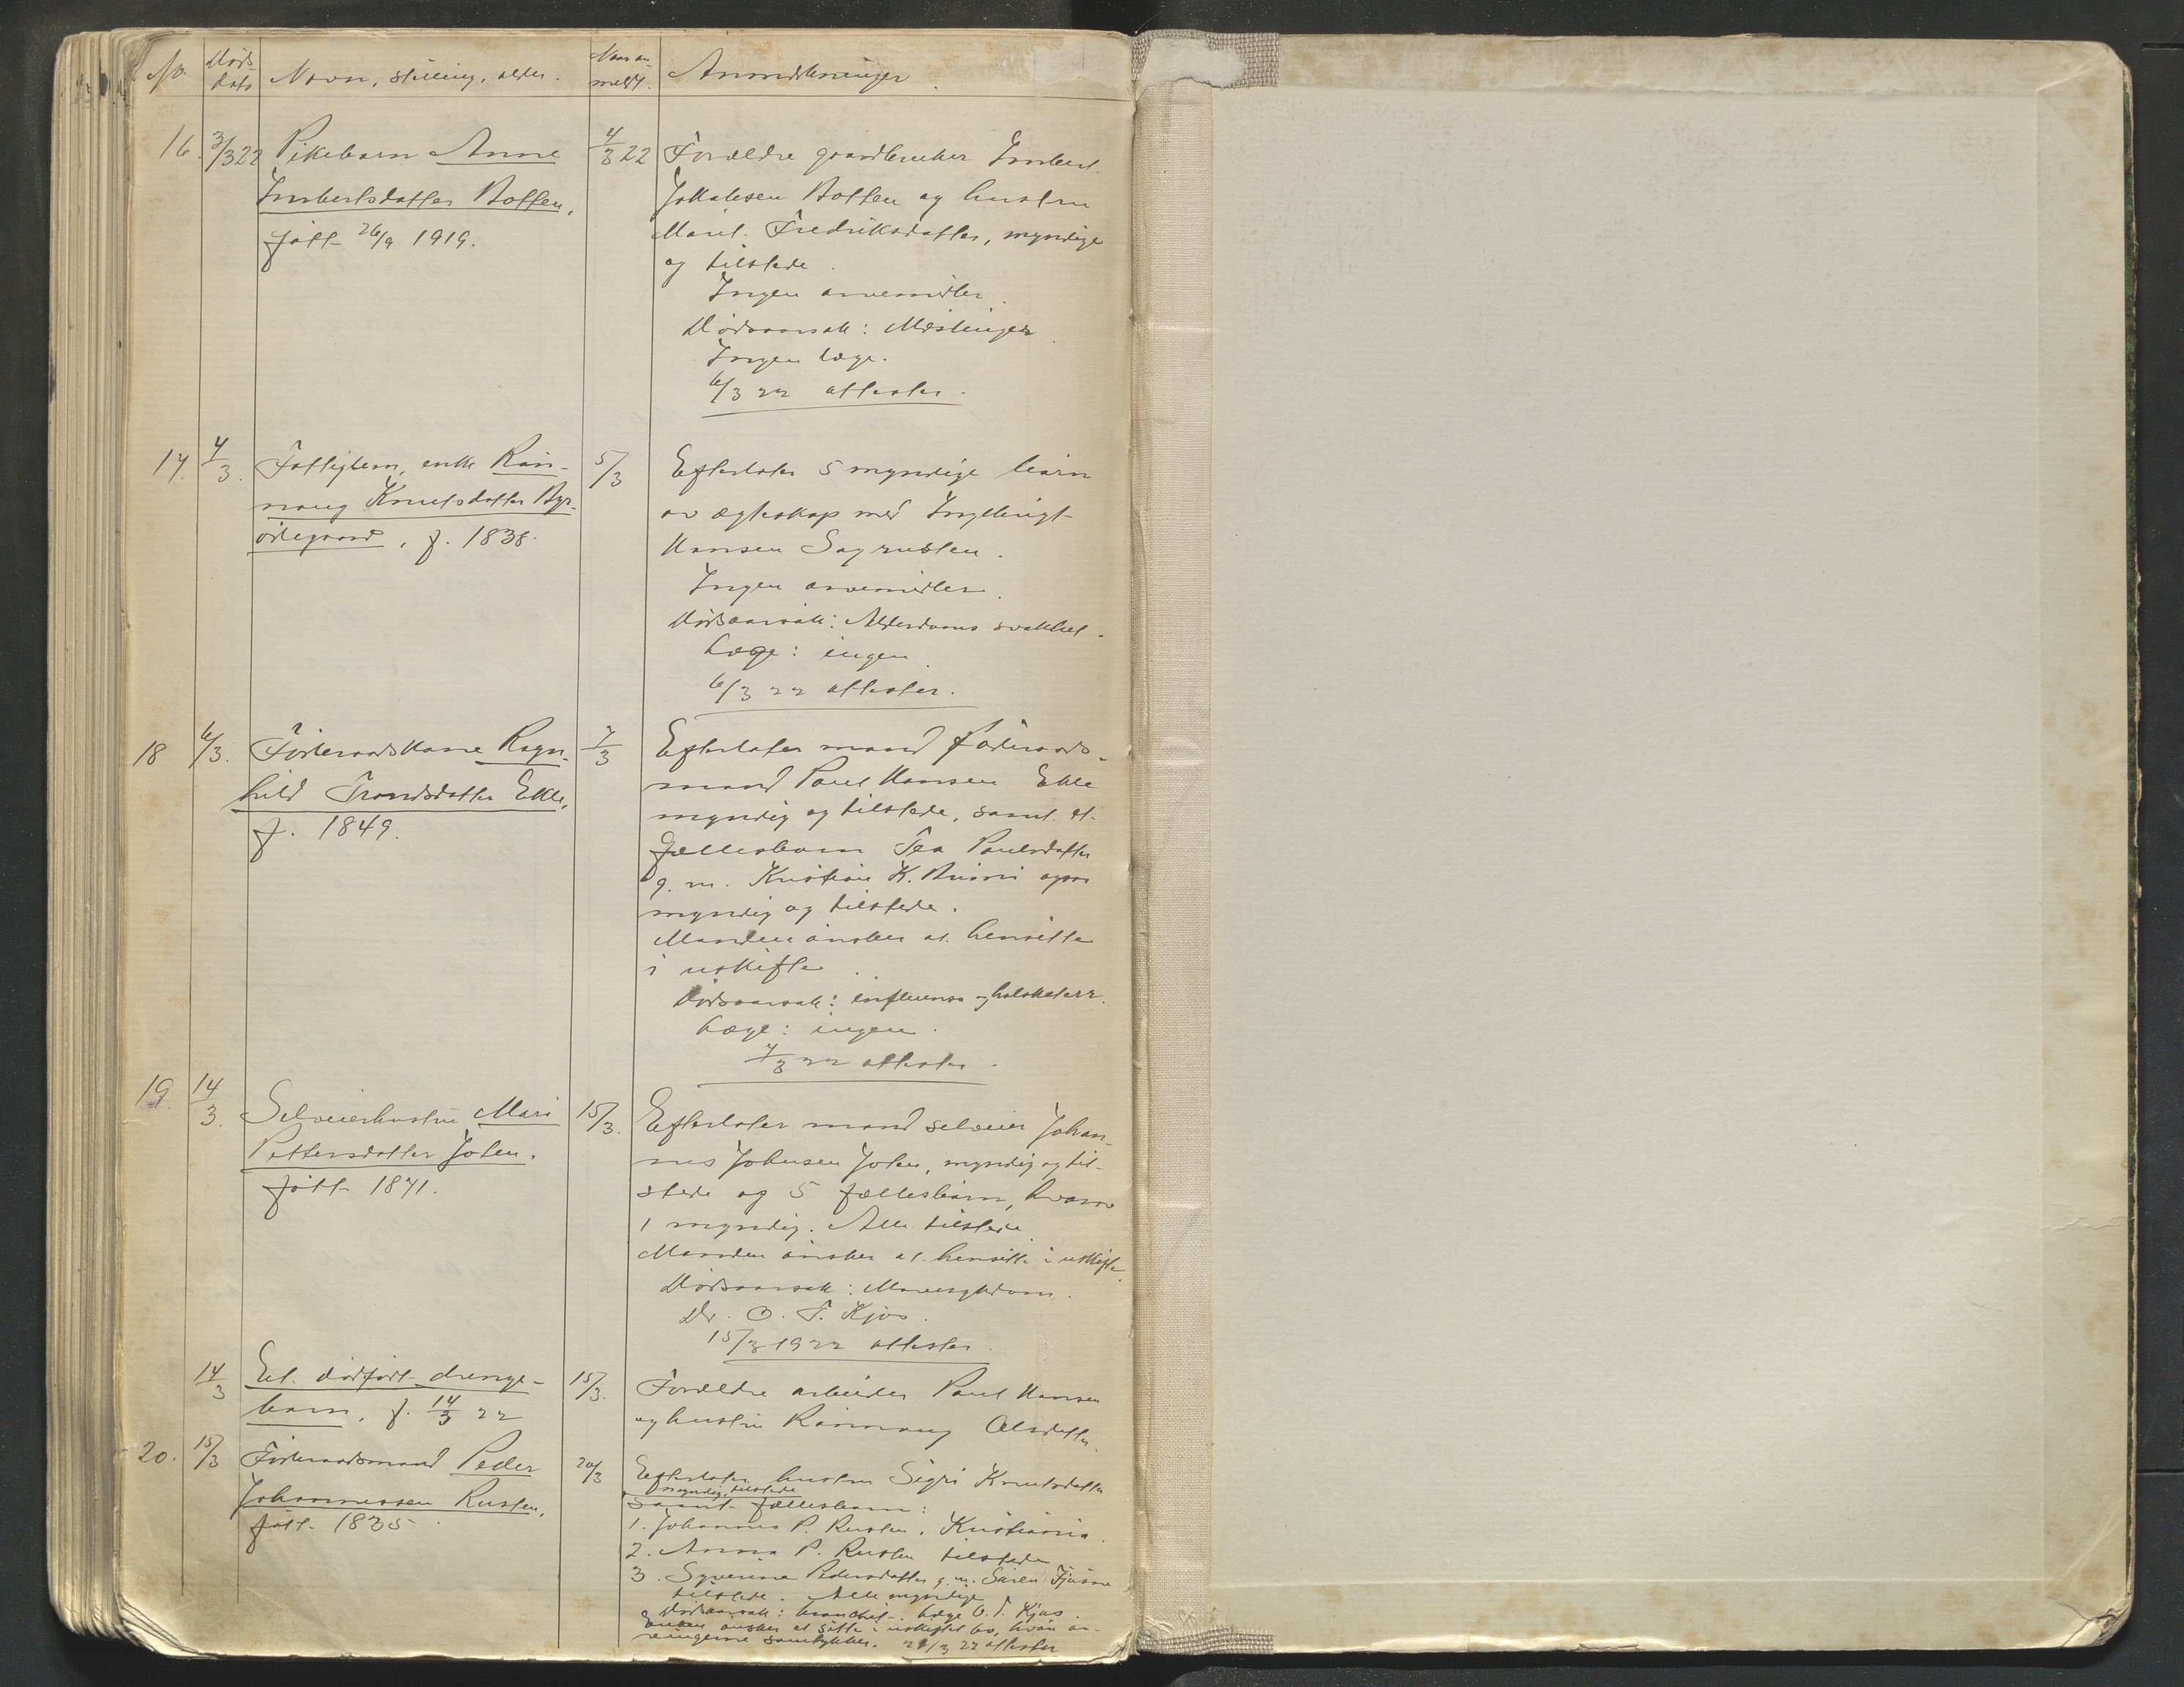 No. Døds- dato Navn, stilling, alder. Naar an- meldt. Anmerkninger.
16. 3/3 22 Pikebarn Anne
Imbertsdatter Botten,
født 26/9 1919.
4/3 22 Forældre gaardbruker Imbert
Jakobsen Botten og hustru
Marit Fredriksdatter, myndige
og tilstede.
Ingen arvemidler.
Dødsaarsak: Mæslinger.
Ingen læge.
6/3 22 attester.
17. 4/3. Fattiglem, enke Ran-
naug Knutsdatter
ødegaard, f. 1838.
5/3 Efterlater 5 myndige børn
av ægteskap med Ingebrigt
Hansen
Ingen arvemidler.
Dødsaarsak: Alderdoms svakhet.
Læge: ingen.
6/3 22 attester.
18 6/3. Føderaadskone Ragn-
hild Trondsdatter Ekle,
f. 1849.
7/3 Efterlater mand føderaads-
mand Paul Hansen Ekle
myndig og tilstede, samt et
fællesbarn Tea Paulsdatter
g. m. Kristian K. ogsaa
myndig og tilstede.
Manden ønsker at hensitte
i uskifte.
Dødsaarsak: influensa og halskatarr.
Læge: ingen.
7/3 22 attester.
19. 14/3. Selveierhustru Mari
Pettersdatter Jolen.
født 1871.
15/3. Efterlater mand selveier Johan-
nes Johnsen Jolen, myndig og til-
stede og 5 fællesbarn, hvorav
1 myndig. Alle tilstede.
Manden ønsker at hensitte i uskifte.
Dødsaarsak: Mavesykdom.
Dr. O. T. Kjos.
15/3 1922 attester.
14/3 Et dødfødt drenge-
barn, f. 14/3 22
15/3. Forældre arbeider Paul Hansen
og hustru Rannaug Olsdatter.
20. 15/3 Føderaadsmand Peder
Johannessen Rusten,
født 1835.
20/3 Efterlater hustru Sigri Knutsdatter
myndig, tilstede
samt fællesbarn:
1. Johannes P. Rusten, Kristiania.
2. Anna P. Rusten tilstede
3. Syverine Pedersdatter g. m. Søren
tilstede. Alle myndige
Dødsaarsak: bronchit. Læge O. T. Kjos.
Enken ønsker at sitte i uskiftet bo, hvori ar-
vingerne samtykker. 21/3 22 attester